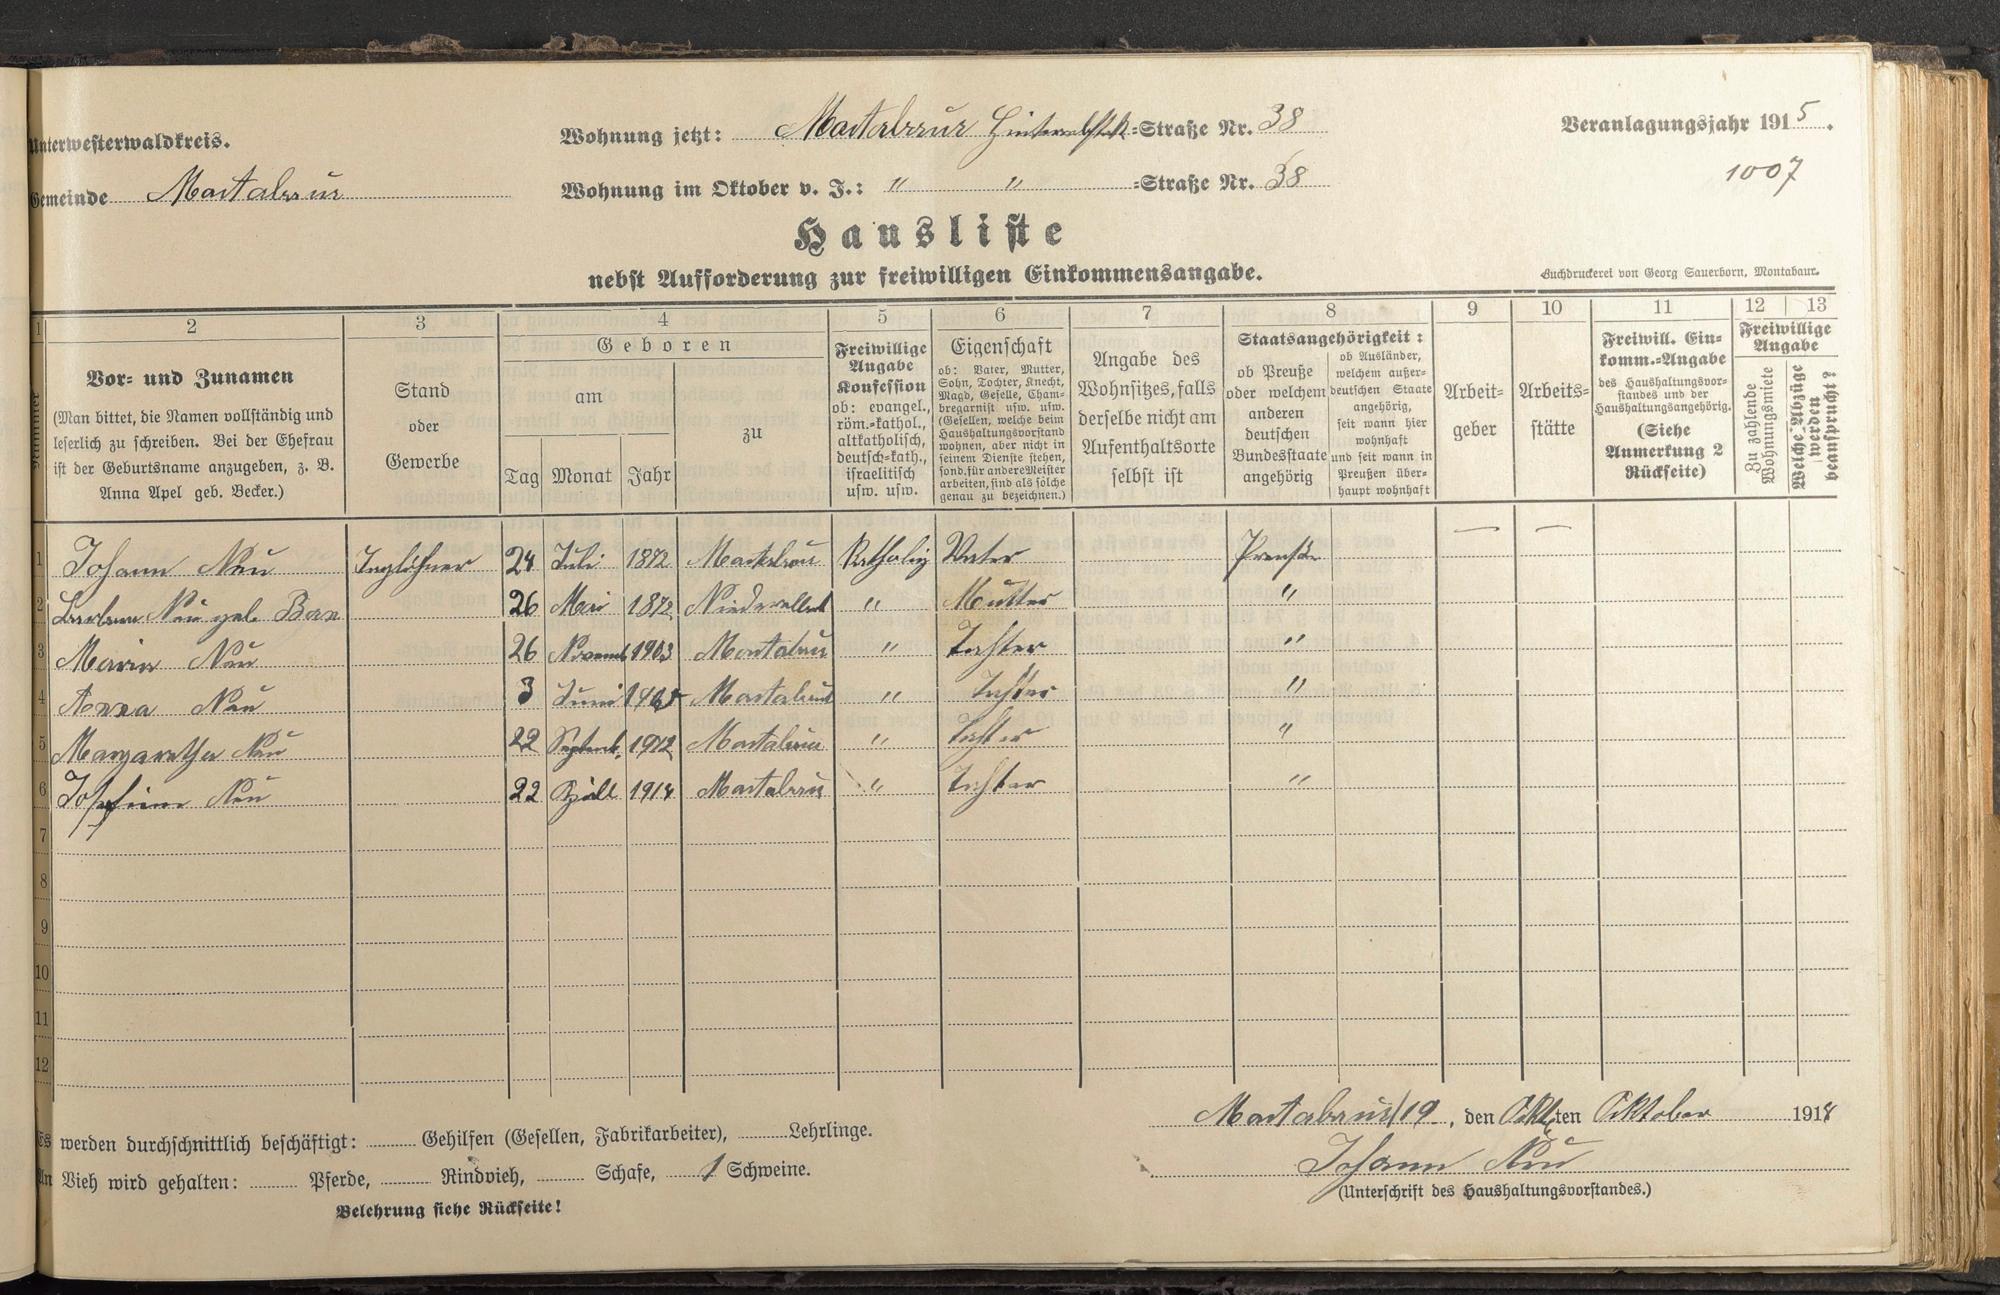 Unterwesterwaldkreis.
Gemeinde Montabaur
Wohnung jetzt: Montabaur =Straße Nr. 38
Wohnung im Oktober v. J.: " " =Straße Nr. 38
Veranlagungsjahr 1915.
1007
Hausliste
nebst Aufforderung zur freiwilligen Einkommensangabe.
Buchdruckerei von Georg Sauerborn, Montabaur.
1 2 3 4 5 6 7 8 9 10 11 12 13
Nummer
Vor- und Zunamen
(Man bittet, die Namen vollständig und
leserlich zu schreiben. Bei der Ehefrau
ist der Geburtsname anzugeben, z. B.
Anna Apel geb. Becker.)
Stand
oder
Gewerbe
Geboren
am
Tag Monat Jahr
zu
Freiwillige
Angabe
Konfession
ob: evangel.,
röm.-kathol.,
altkatholisch,
deutsch-kath.,
israelitisch
usw. usw.
Eigenschaft
ob: Vater, Mutter,
Sohn, Tochter, Knecht,
Magd, Geselle, Cham-
bregarnist usw. usw.
(Gesellen, welche beim
Haushaltungsvorstand
wohnen, aber nicht in
seinem Dienste stehen,
sond. für andere Meister
arbeiten, sind als solche
genau zu bezeichnen.)
Angabe des
Wohnsitzes, falls
derselbe nicht am
Aufenthaltsorte
selbst ist
Staatsangehörigkeit:
ob Preuße
oder welchem
anderen
deutschen
Bundesstaate
angehörig
ob Ausländer,
welchem außer-
deutschen Staate
angehörig,
seit wann hier
wohnhaft
und seit wann in
Preußen über-
haupt wohnhaft
Arbeit-
geber
Arbeits-
stätte
Freiwill. Ein-
komm.-Angabe
des Haushaltungsvor-
standes und der
Haushaltungsangehörig.
(Siehe
Anmerkung 2
Rückseite)
Freiwillige
Angabe
Zu zahlende
Wohnungsmiete
Welche Abzüge
werden
beansprucht?
1 Johann Neu Taglöhner 24 Juli 1872 Montabaur Katholig Vater Preuße — —
2 Neu geb. 26 Mai 1872 " Mutter "
3 Maria Neu 26 Novemb 1903 Montabaur " Tochter "
4 Anna Neu 3 Juni Montabaur " Tochter "
5 Margaretha Neu 22 Septemb. 1912 Montabaur " Tochter "
6 Josefine Neu 22 1914 Montabaur " Tochter "
7
8
9
10
11
12
Es werden durchschnittlich beschäftigt: Gehilfen (Gesellen, Fabrikarbeiter), Lehrlinge.
An Vieh wird gehalten: Pferde, Rindvieh, Schafe, 1 Schweine.
Belehrung siehe Rückseite!
Montabaur 19, den ten Oktober 1914
Johann Neu
(Unterschrift des Haushaltungsvorstandes.)